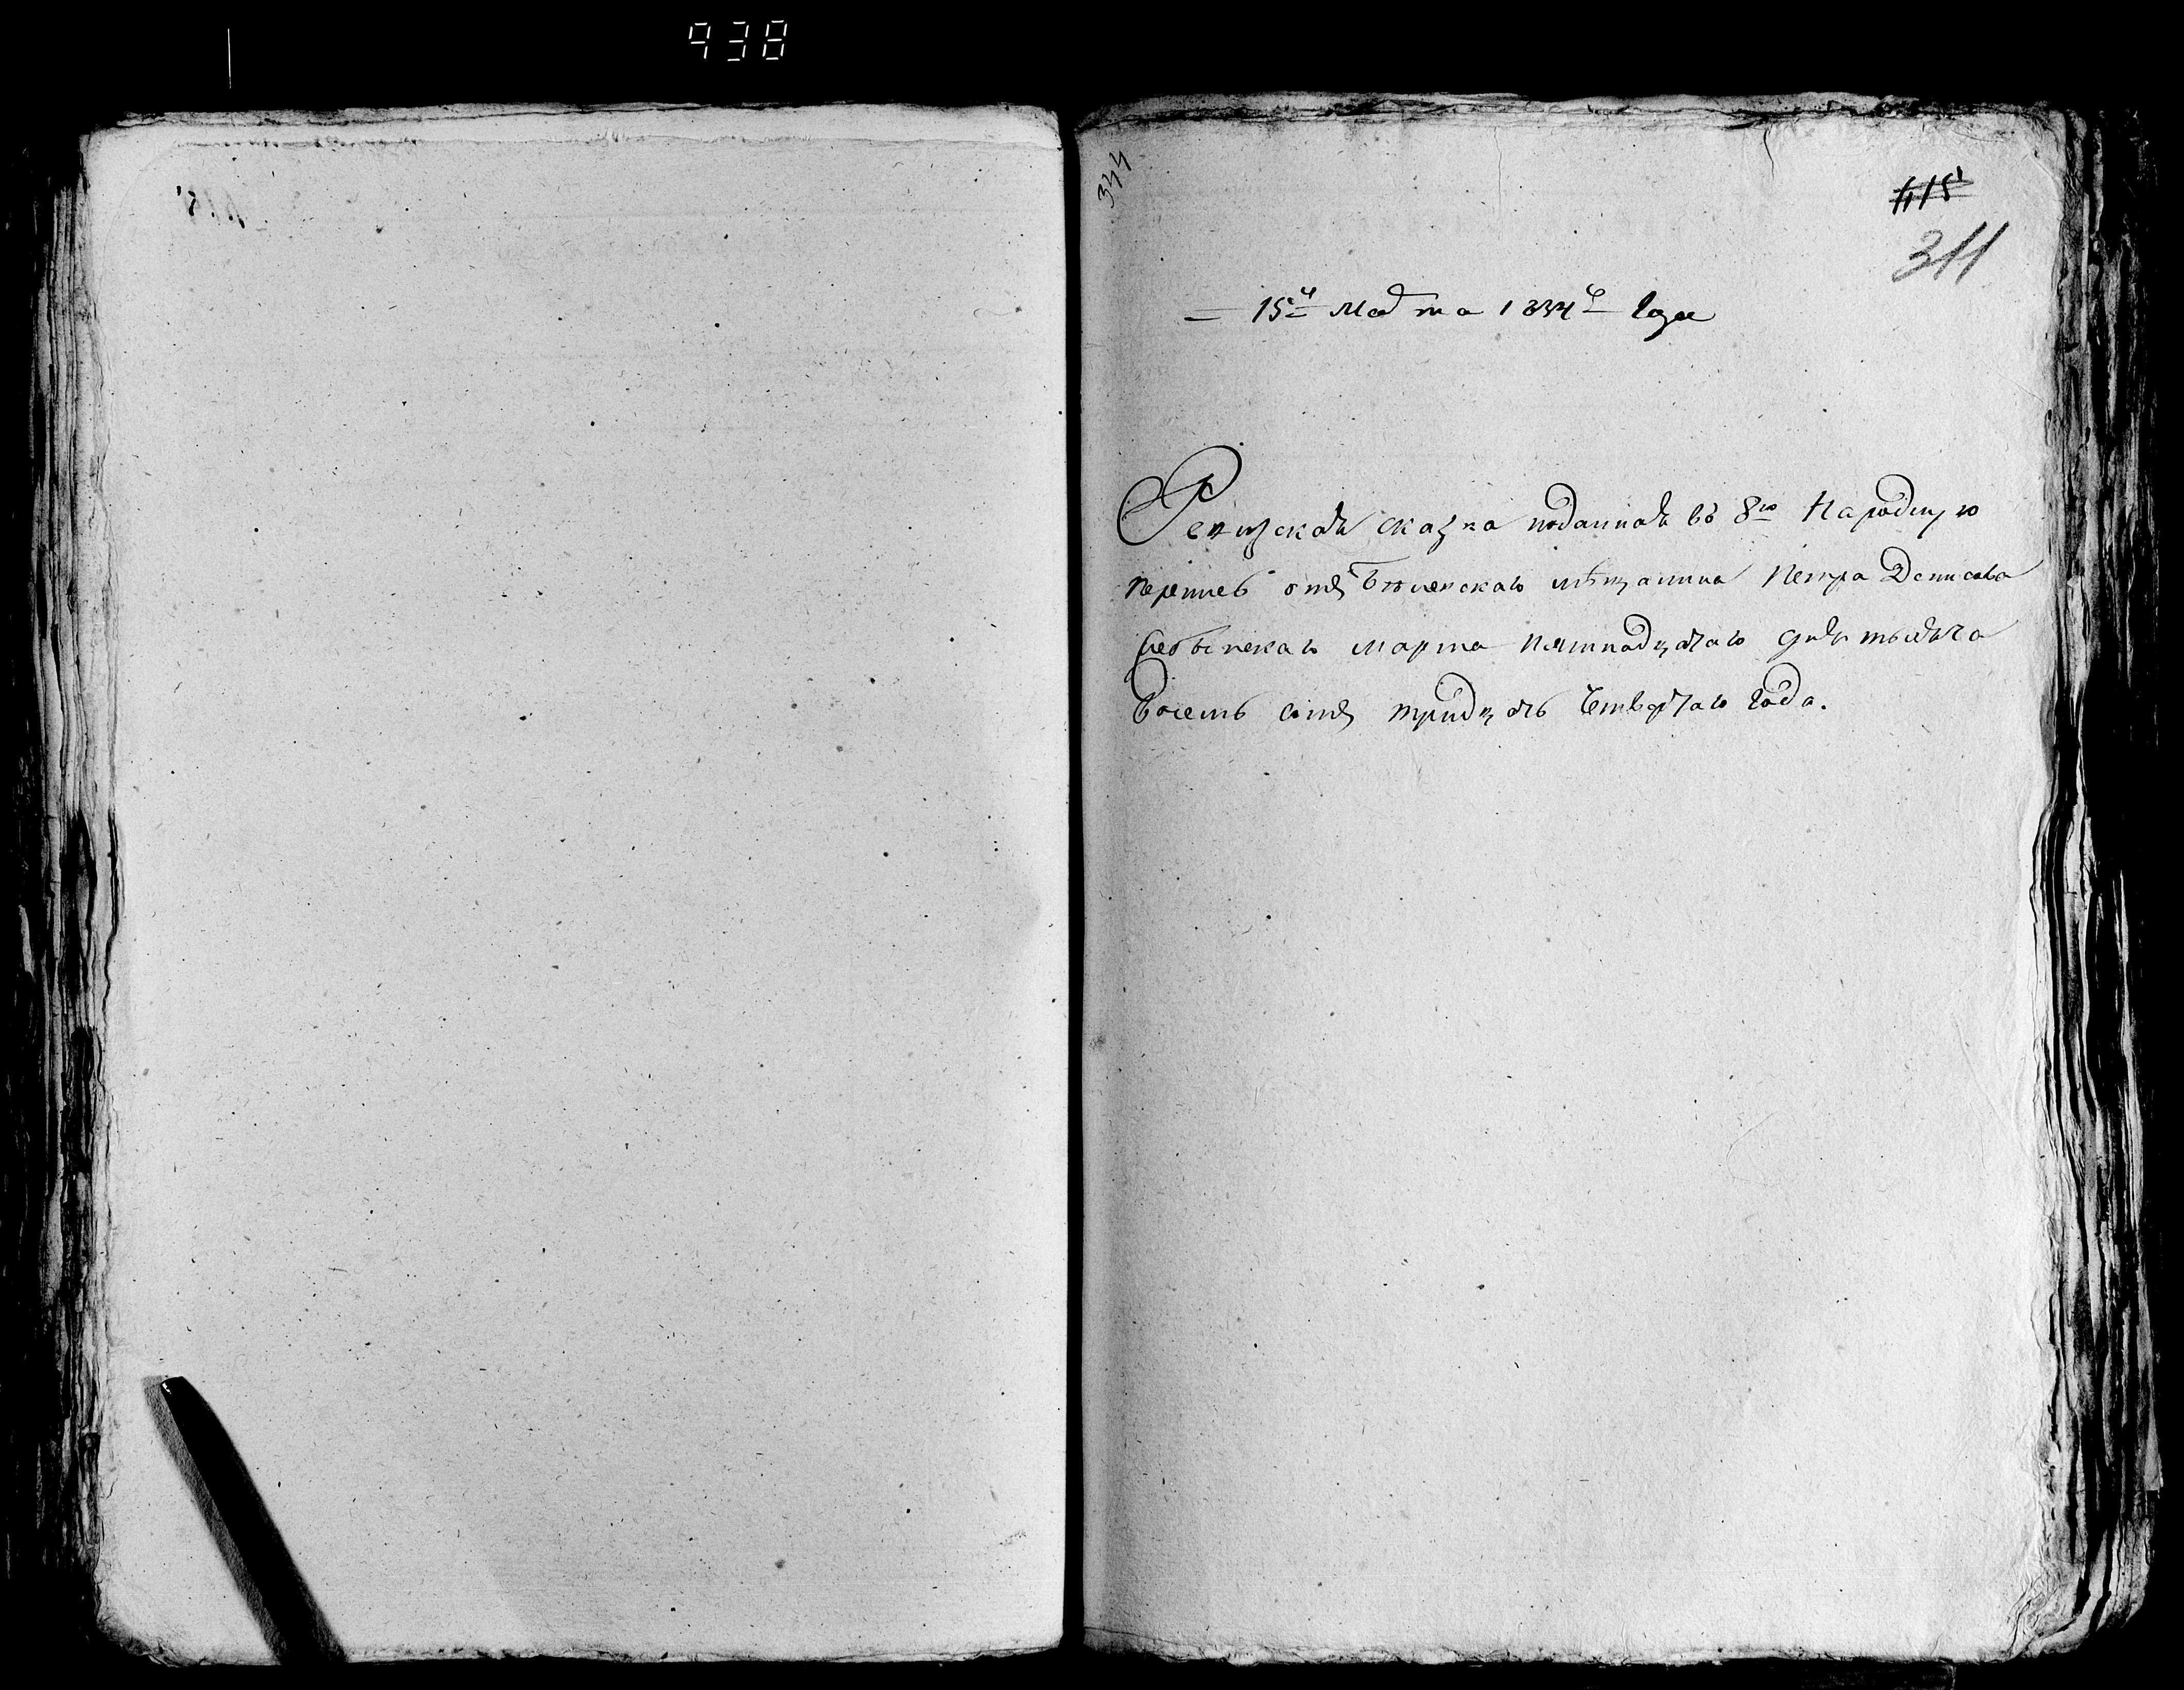 938
344
415
311
— 15го Марта 1834го Года
Ревизская сказка поданная въ 8ю Народную
перепись отъ Бѣлевскаго мѣщанина Петра Денисова
марта пятнадцатаго дня тысяча
восемь сотъ тридцать четвертаго года.